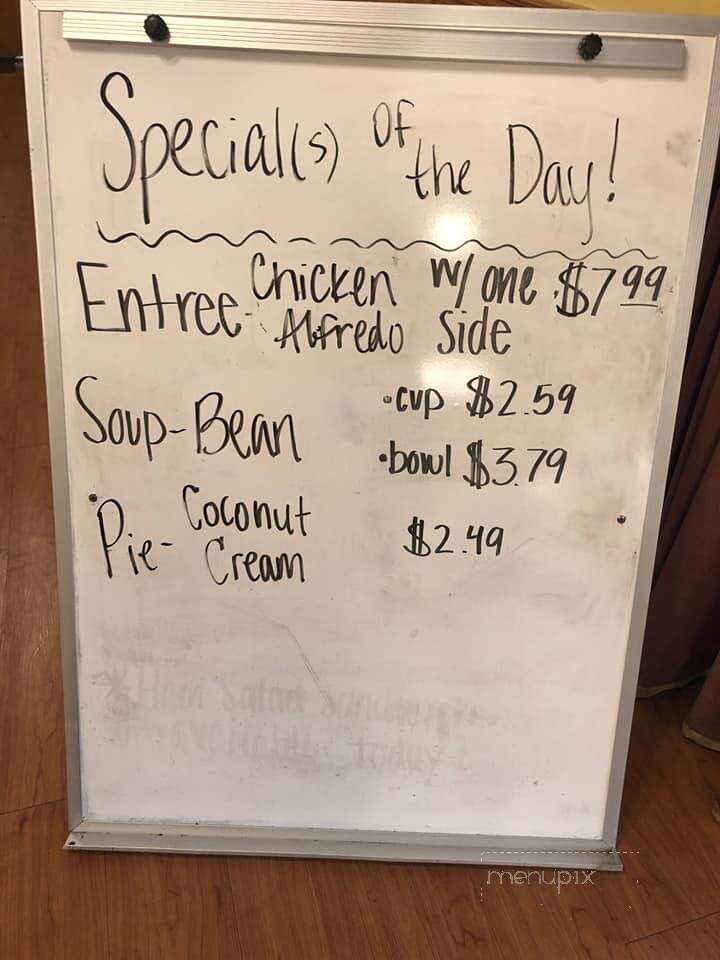 Special(s) of the Day!
Entree- Chicken Alfredo w/ one side $7.99
Soup-Bean
•cup $2.59
•bowl $3.79
Pie- Coconut Cream $2.49
menupix